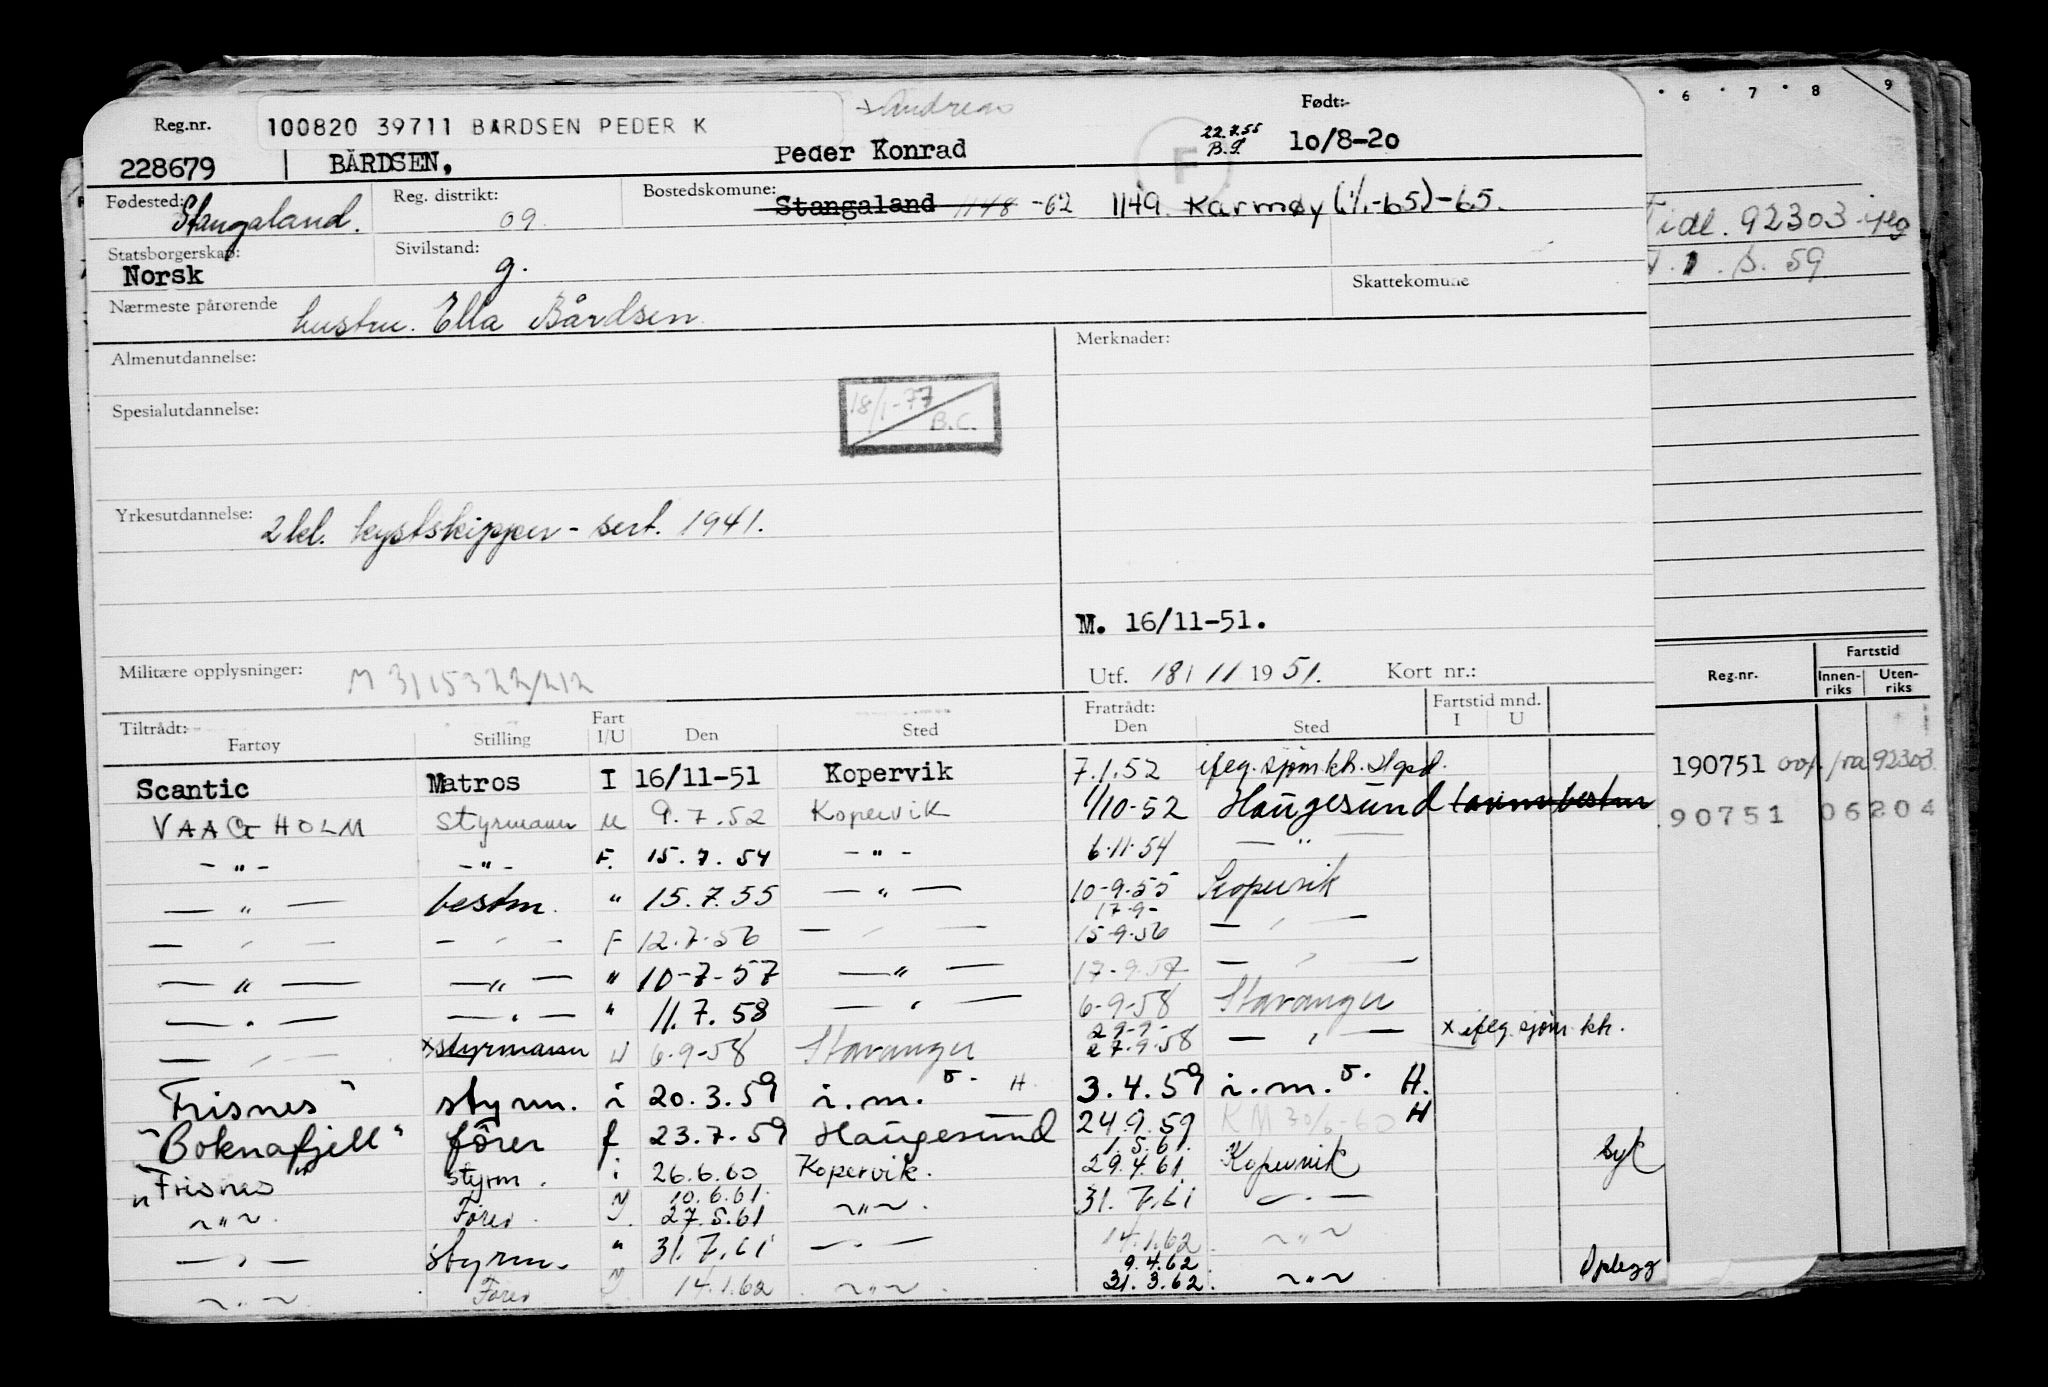 Reg.nr. 100820 39711 BARDSEN PEDER K + Andreas Født:- 6 7 8 9
228679 BÅRDSEN, Peder Konrad F 22.7.55 B.J. 10/8-20
Fødested: Stangaland. Reg. distrikt: 09. Bostedskomune: Stangaland 1148 -62 1149. Karmøy (1/1-65)-65.
Tidl. 92303
Statsborgerskap: Norsk Sivilstand: g.
59
Skattekomune
Nærmeste pårørende hustru. Ella Bårdsen
Almenutdannelse: Merknader:
Spesialutdannelse: 18/1-77 B.C.
Yrkesutdannelse: 2 kl. kystskipper - sert. 1941.
M. 16/11-51.
Militære opplysninger: M 3115322/212 Utf. 18/11 1951. Kort nr.:
Reg.nr. Fartstid Innen-riks Uten-riks
Tiltrådt: Fartøy Stilling Fart I/U Den Sted Fratrådt: Den Sted Fartstid mnd. I U
Scantic Matros I 16/11-51 Kopervik 7.1.52 ifeg. sjøm.kh. Hgsd.
190751 92303
VAAG HOLM Styrmann U 9.7.52 Kopervik 1/10-52 Haugesund
90751 06204
- " - - " - F. 15.7.54 - " - 6.11.54 — " —
— " — bestm. " 15.7.55 — " — 10-9.55 Kopervik
17-9-
— " — — " — F 12.7.56 — " — 15-9.56 — " —
— " — — " — " 10-7-57 — " — 17-9.57 — " —
— " — — " — " 11.7.58 — " — 6-9-58 Stavanger
29-9-
— " — x styrmann U 6-9-58 Stavanger 27.9.58 — " — x ifeg. sjøm. kh.
"Frisnes" styrm. i 20.3.59 i.m. o. H. 3.4.59 i.m. o. H.
"Boknafjell" fører f 23.7.59 Haugesund 24.9.59 KM 30/6-60 H
1.5.61.
"Frisnes" styrm. i 26.6.60 Kopervik. 29.4.61. Kopervik syk
10.6.61.
~ " ~ Fører 27.5.61 ~ " ~ 31.7.61 — " —
— " — styrm. " 31.7.61 — " — 14.1.62. ~ " ~
9.4.62
~ " ~ Fører 14.1.62 ~ " ~ 31.3.62. ~ " ~ Oplegg